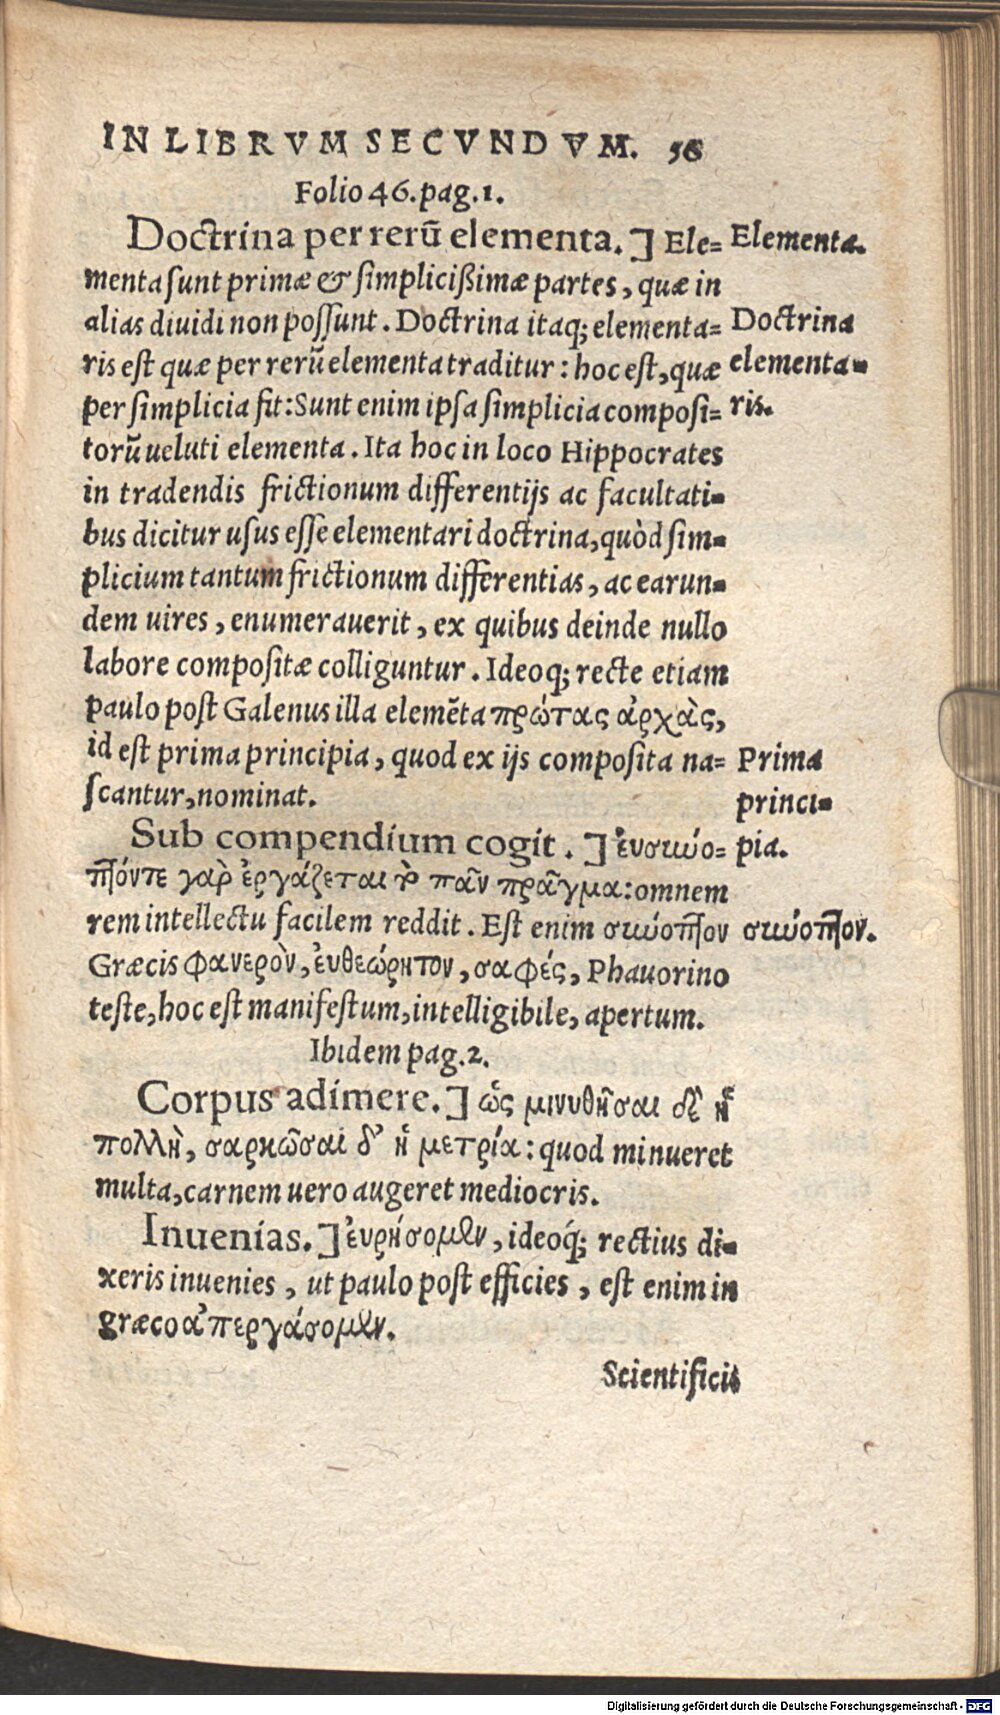 IN LIBRVM SECVNDVM. 56
Folio 46. pag. 1.
Doctrina per rerū elementa. ] Ele=
menta sunt primæ & simplicißimæ partes, quæ in
alias diuidi non possunt. Doctrina itaq; elementa=
ris est quæ per rerū elementa traditur: hoc est, quæ
per simplicia fit: Sunt enim ipsa simplicia composi=
torū ueluti elementa. Ita hoc in loco Hippocrates
in tradendis frictionum differentijs ac facultati=
bus dicitur usus esse elementari doctrina, quòd sim=
plicium tantum frictionum differentias, ac earun=
dem uires, enumerauerit, ex quibus deinde nullo
labore compositæ colliguntur. Ideoq; recte etiam
paulo post Galenus illa elemēta πρώτας ἀρχὰς,
id est prima principia, quod ex ijs composita na=
scantur, nominat.
Sub compendium cogit. ] ἐυσιωύο=
πἸόντε γαρ ἐργάζεται τὸ πᾶν πρᾶγμα: omnem
rem intellectu facilem reddit. Est enim
Græcis φανερὸν, ἐυθεώρητον, σαφές, Phauorino
teste, hoc est manifestum, intelligibile, apertum.
Ibidem pag. 2.
Corpus adimere. ] ὡς μινυθῆσαι δὲ ἡ
πολλὴ, σαρκῶσαι δ' ἡ μετρία: quod minueret
multa, carnem uero augeret mediocris.
Inuenias. ] ἑυρήσομεν, ideoq́; rectius di=
xeris inuenies, ut paulo post efficies, est enim in
græco ἀπεργάσομεν.
Scientificis
Elementa.
Doctrina
elementa=
ris.
Prima
princi=
pia.